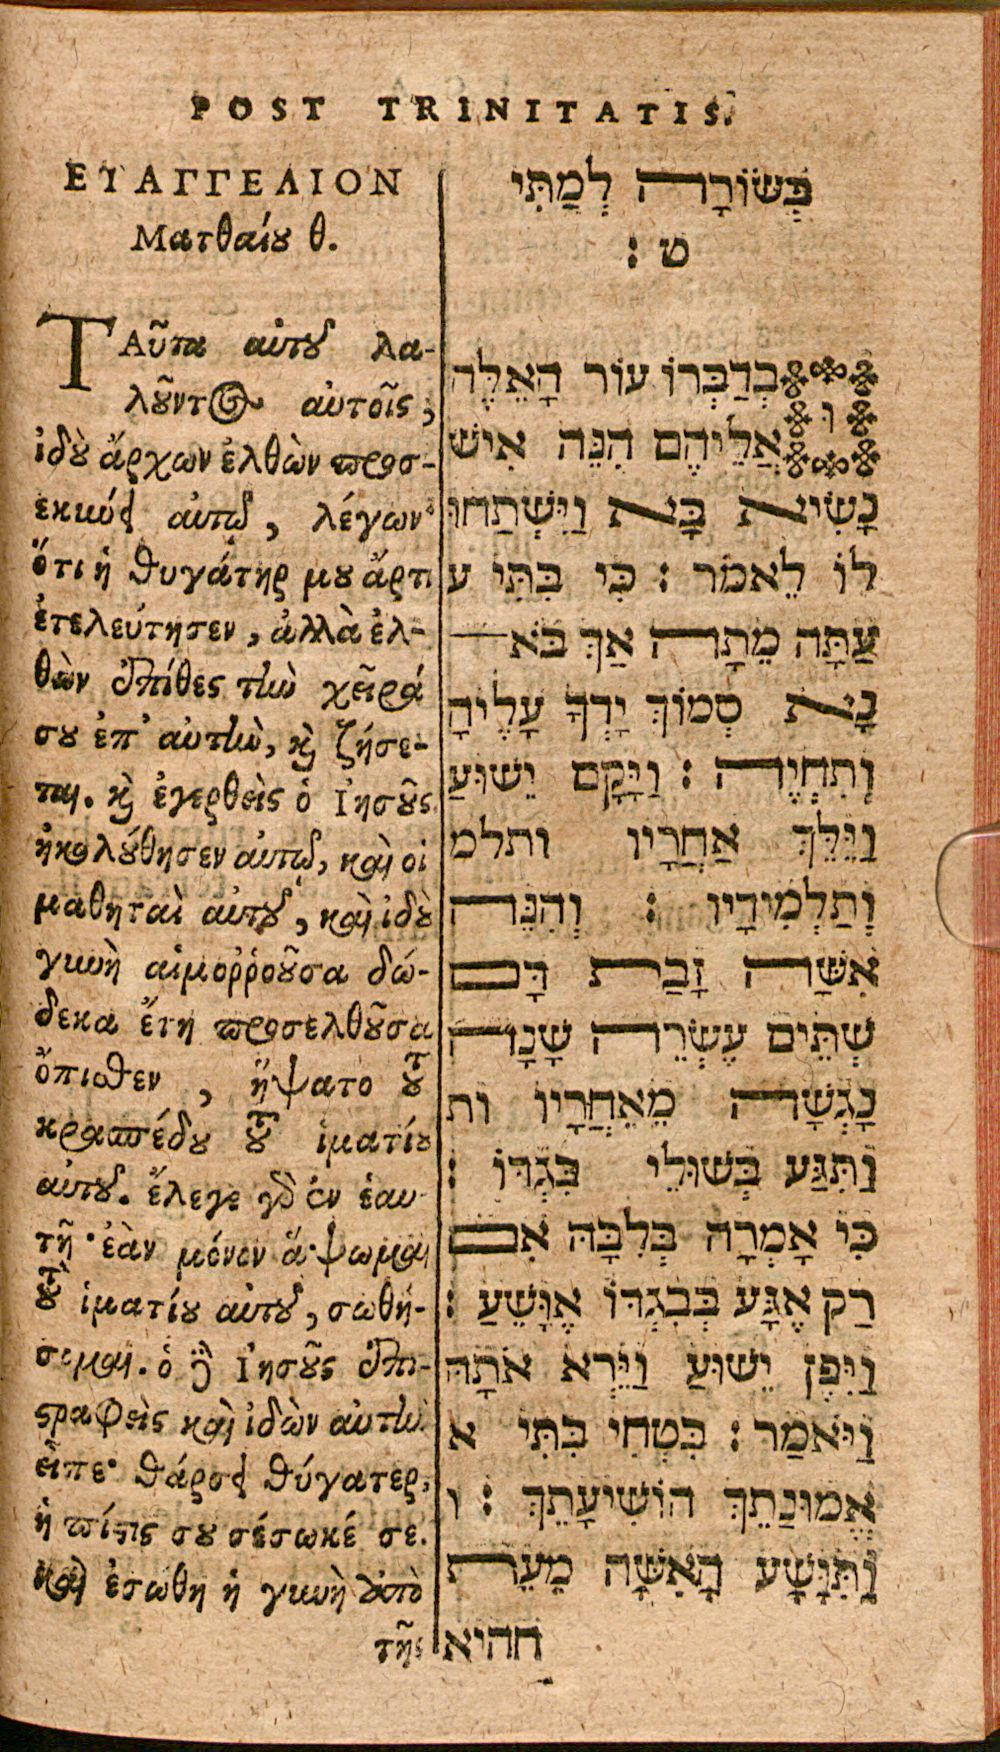 POST TRINITATIS.
ΕΥΑΓΓΕΛΙΟΝ
Ματθαίου θ.
ΤΑῦτα αὐτοῦ λα-
λοῦντος αὐτοῖς,
ἰδοὺ ἄρχων ἐλθὼν προσ-
εκύνει αὐτῷ, λέγων·
ὅτι ἡ θυγάτηρ μου ἄρτι
ἐτελεύτησεν, ἀλλὰ ἐλ-
θὼν ἐπίθες τὴν χεῖρά
σου ἐπ' αὐτὴν, καὶ ζήσε-
ται. καὶ ἐγερθεὶς ὁ Ἰησοῦς
ἠκολούθησεν αὐτῷ, καὶ οἱ
μαθηταὶ αὐτοῦ, καὶ ἰδοὺ
γυνὴ αἱμοῤῥοῦσα δώ-
δεκα ἔτη προσελθοῦσα
ὄπισθεν, ἥψατο τοῦ
κρασπέδου τοῦ ἱματίου
αὐτοῦ. ἔλεγε γὰρ ἐν ἑαυ-
τῇ· ἐὰν μόνον ἅψωμαι
τοῦ ἱματίου αὐτοῦ, σωθή-
σομαι. ὁ δὲ Ἰησοῦς ἐπι-
στραφεὶς καὶ ἰδὼν αὐτὴν
εἶπε· θάρσει θύγατερ,
ἡ πίστις σου σέσωκέ σε.
καὶ ἐσώθη ἡ γυνὴ ἀπὸ
τῆς
בְּשׂוֹרָה לְמַתִּי
ט :
בְּדַבְּרוֹ עוֹר הָאֵלֶּה
אֲלֵיהֶם הִנֵּה אִישׁ
נָשִׂיא בָּא וַיִּשְׁתַּחוּ
לוֹ לֵאמֹר : כִּי בִּתִּי ע
עַתָּה מֵתָה אַךְ בֹּא
נָא סְמוֹךְ יָדְךָ עָלֶיהָ
וְתִחְיֶה : וַיָּקָם יֵשׁוּעַ
וַיֵּלֵךְ אַחֲרָיו ותלמ
וְתַלְמִידָיו : וְהִנֵּה
אִשָּׁה זָבַת דָּם
שְׁתֵּים עֶשְׂרֵה שָׁנָה
נָגְשָׁה מֵאַחֲרָיו ות
וַתִּגַּע בְּשׁוּלֵי בִּגְדוֹ :
כִּי אָמְרָה בְּלִבָּהּ אִם
רַק אֶגָּע בְּבִגְדוֹ אֶוָּשֵׁעַ :
וַיִּפֶן יֵשׁוּעַ וַיַּרְא אֹתָהּ
וַיֹּאמַר : בִּטְחִי בִּתִּי א
אֱמוּנָתֵךְ הוֹשִׁיעָתֵךְ : ו
וַתִּוָּשַׁע הָאִשָּׁה מָעֵת
חהיא